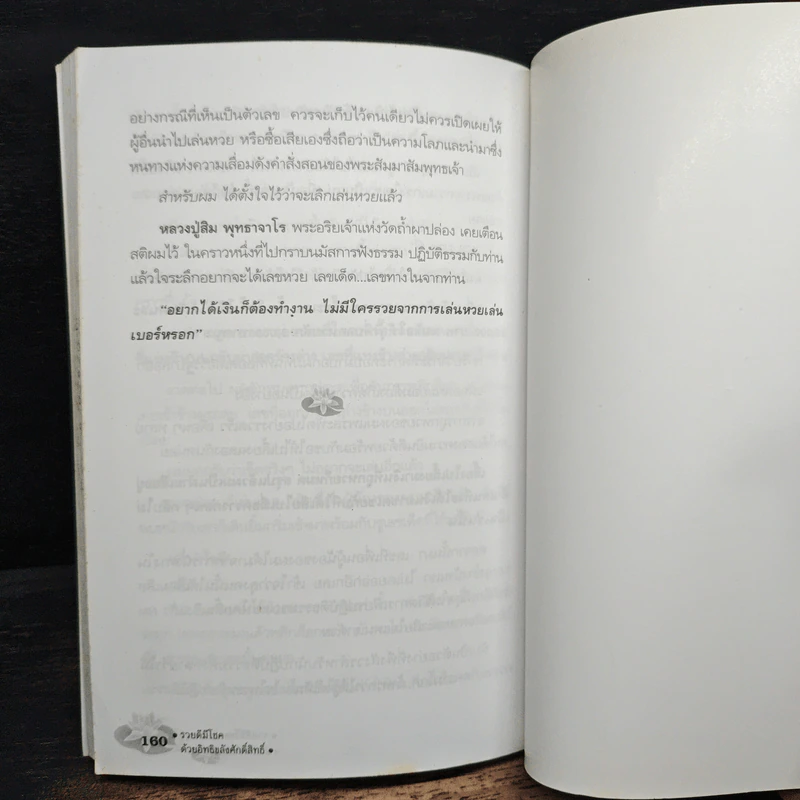 อย่างกรณีที่เห็นเป็นตัวเลข ควรจะเก็บไว้คนเดียวไม่ควรเปิดเผยให้
ผู้อื่นนำไปเล่นหวย หรือซื้อเสียเองซึ่งถือว่าเป็นความโลภและนำมาซึ่ง
หนทางแห่งความเสื่อมดังคำสั่งสอนของพระสัมมาสัมพุทธเจ้า
สำหรับผม ได้ตั้งใจไว้ว่าจะเลิกเล่นหวยแล้ว
หลวงปู่สิม พุทธาจาโร พระอริยเจ้าแห่งวัดถ้ำผาปล่อง เคยเตือน
สติผมไว้ ในคราวหนึ่งที่ไปกราบนมัสการฟังธรรม ปฏิบัติธรรมกับท่าน
แล้วใจระลึกอยากจะได้เลขหวย เลขเด็ด...เลขทางในจากท่าน
“อยากได้เงินก็ต้องทำงาน ไม่มีใครรวยจากการเล่นหวยเล่น
เบอร์หรอก”
160 • รวยดีมีโชค
ด้วยอิทธิพลังศักดิ์สิทธิ์ •